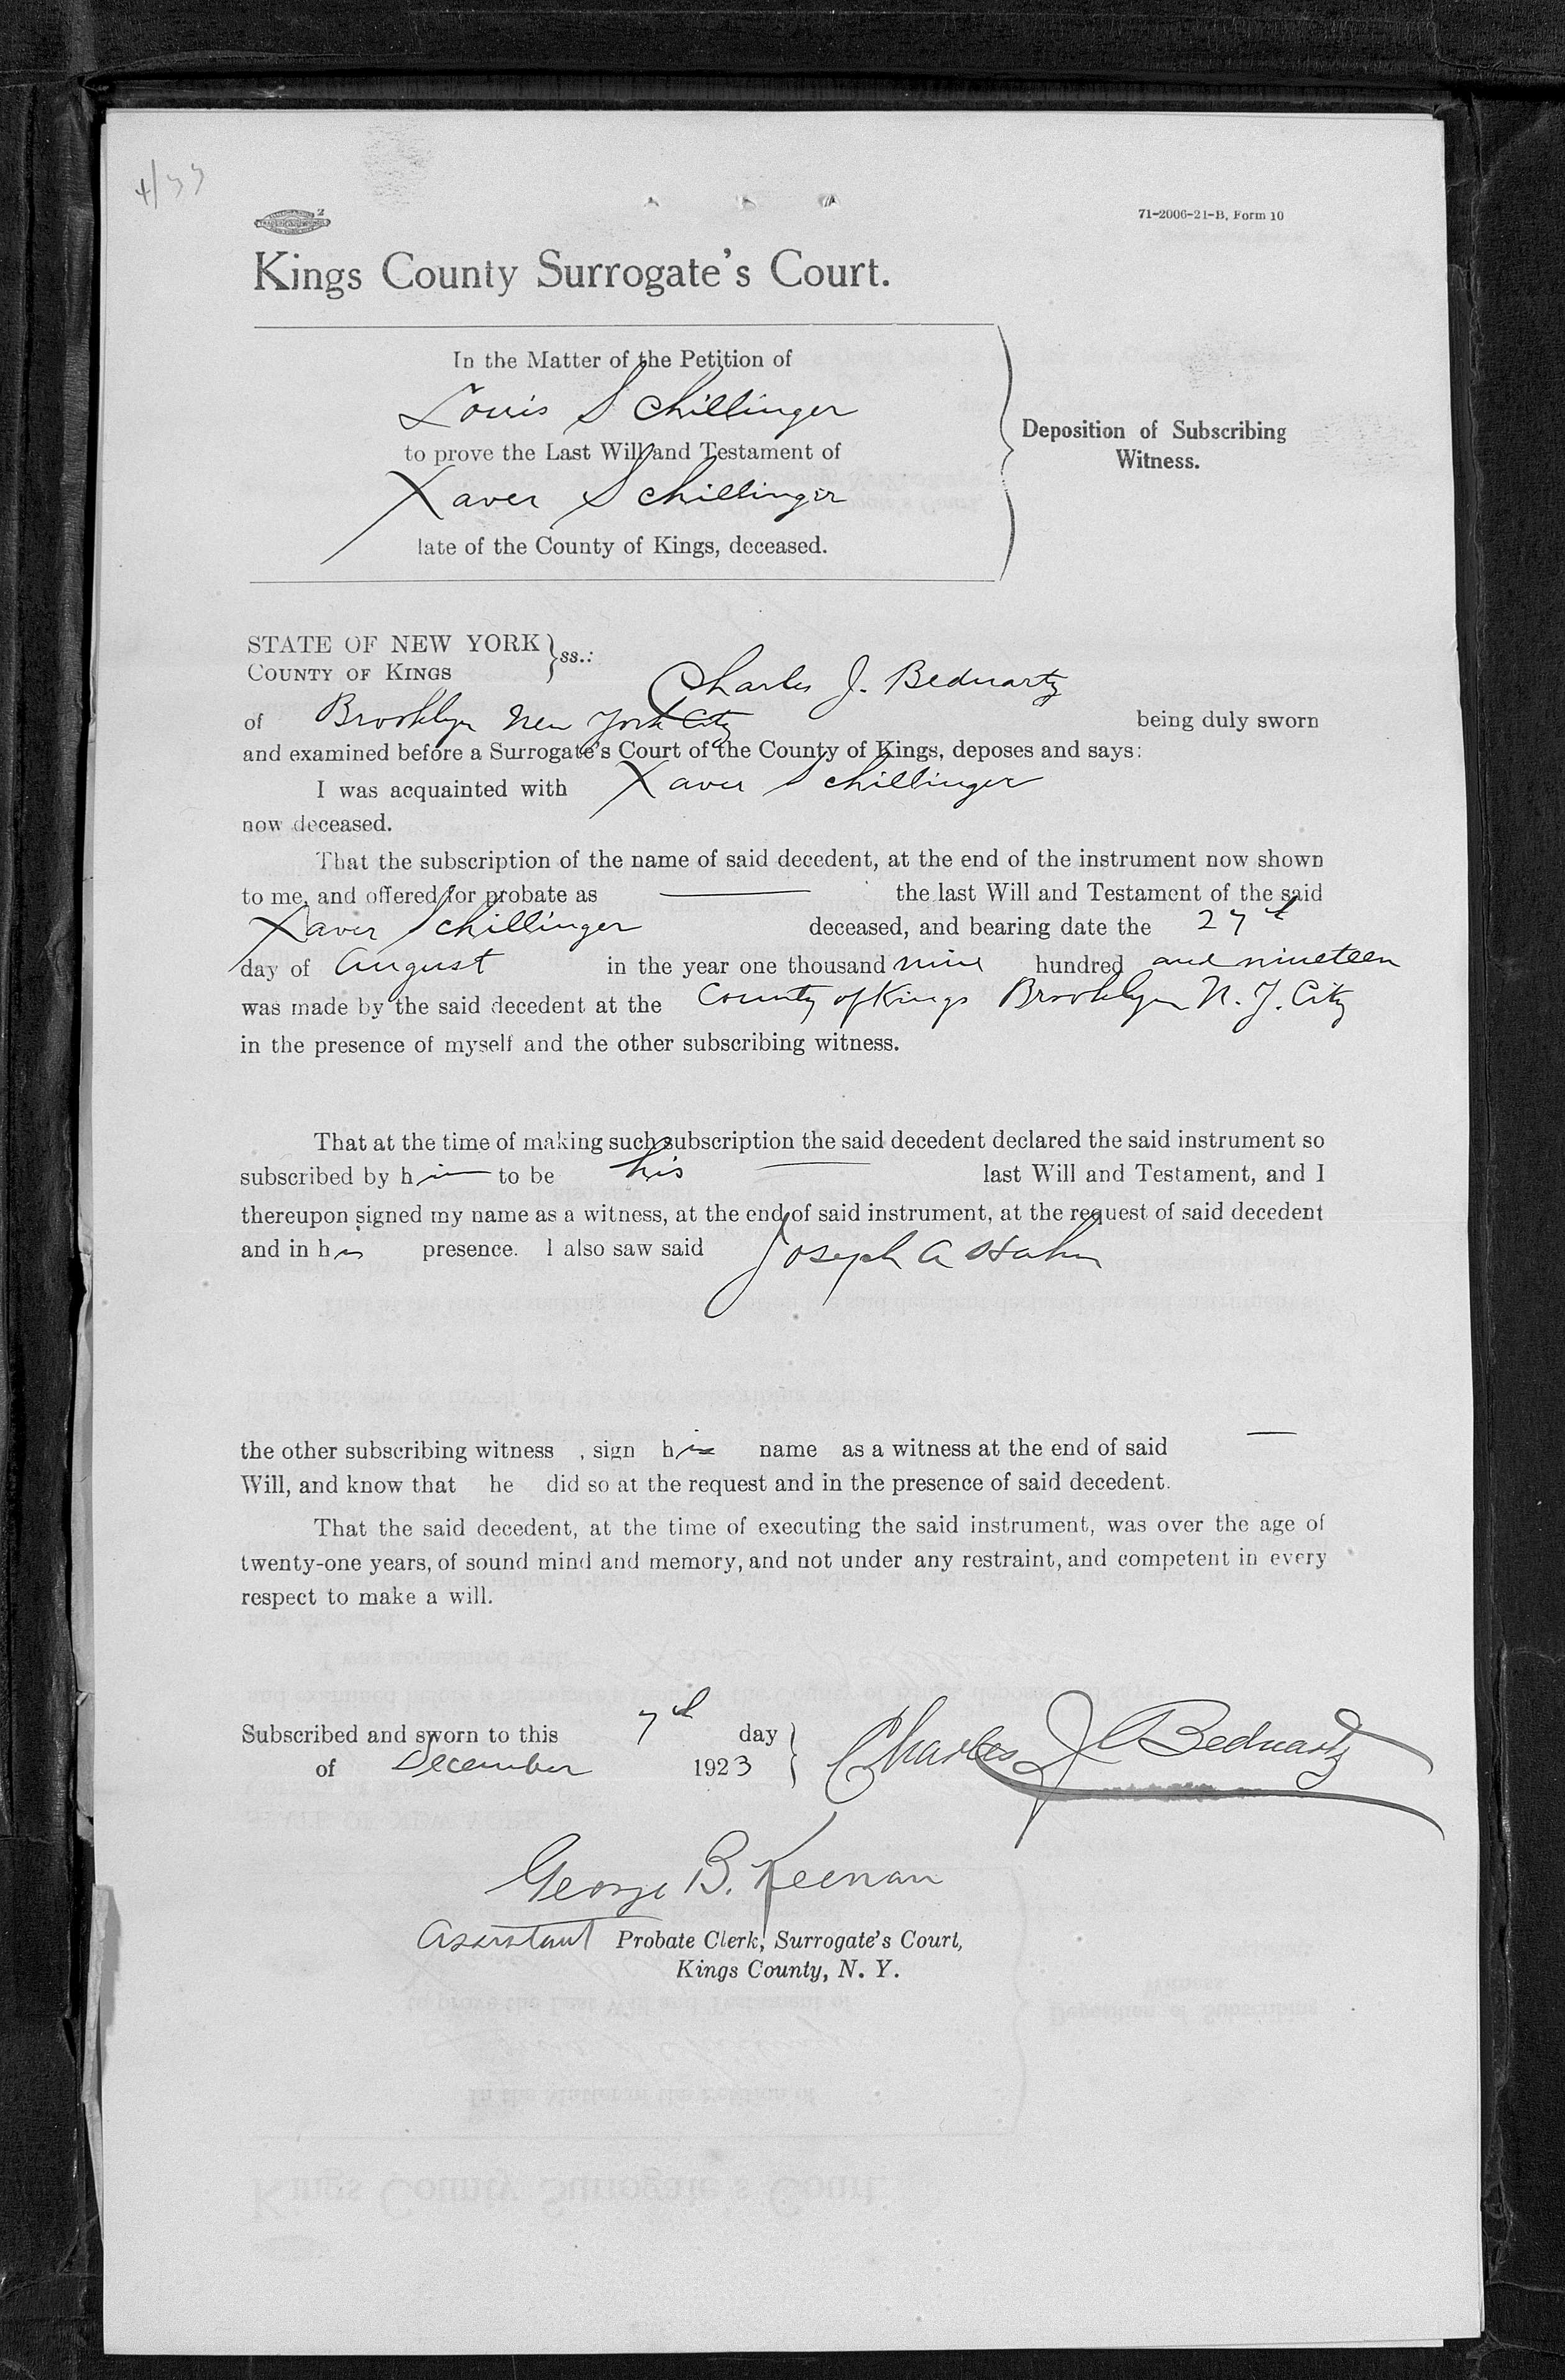 71-2006-21-B, Form 10
Kings County Surrogate's Court.
In the Matter of the Petition of
Louis Schillinger
to prove the Last Will and Testament of
Xaver Schillinger
late of the County of Kings, deceased.
Deposition of Subscribing
Witness.
STATE OF NEW YORK
COUNTY OF KINGS
ss.:
Charles J. Beduartz
of Brooklyn New York City being duly sworn
and examined before a Surrogate's Court of the County of Kings, deposes and says:
I was acquainted with Xaver Schillinger
now deceased.
That the subscription of the name of said decedent, at the end of the instrument now shown
to me, and offered for probate as the last Will and Testament of the said
Xaver Schillinger deceased, and bearing date the 27th
day of August in the year one thousand nine hundred and nineteen
was made by the said decedent at the County of Kings Brooklyn N. Y. City
in the presence of myself and the other subscribing witness.
That at the time of making such subscription the said decedent declared the said instrument so
subscribed by him to be his last Will and Testament, and I
thereupon signed my name as a witness, at the end of said instrument, at the request of said decedent
and in his presence. I also saw said Joseph A Hahn
the other subscribing witness , sign his name as a witness at the end of said
Will, and know that he did so at the request and in the presence of said decedent.
That the said decedent, at the time of executing the said instrument, was over the age of
twenty-one years, of sound mind and memory, and not under any restraint, and competent in every
respect to make a will.
Subscribed and sworn to this 7th day
of December 1923
Charles J Beduartz
George B. Keenan
Assistant Probate Clerk, Surrogate's Court,
Kings County, N. Y.